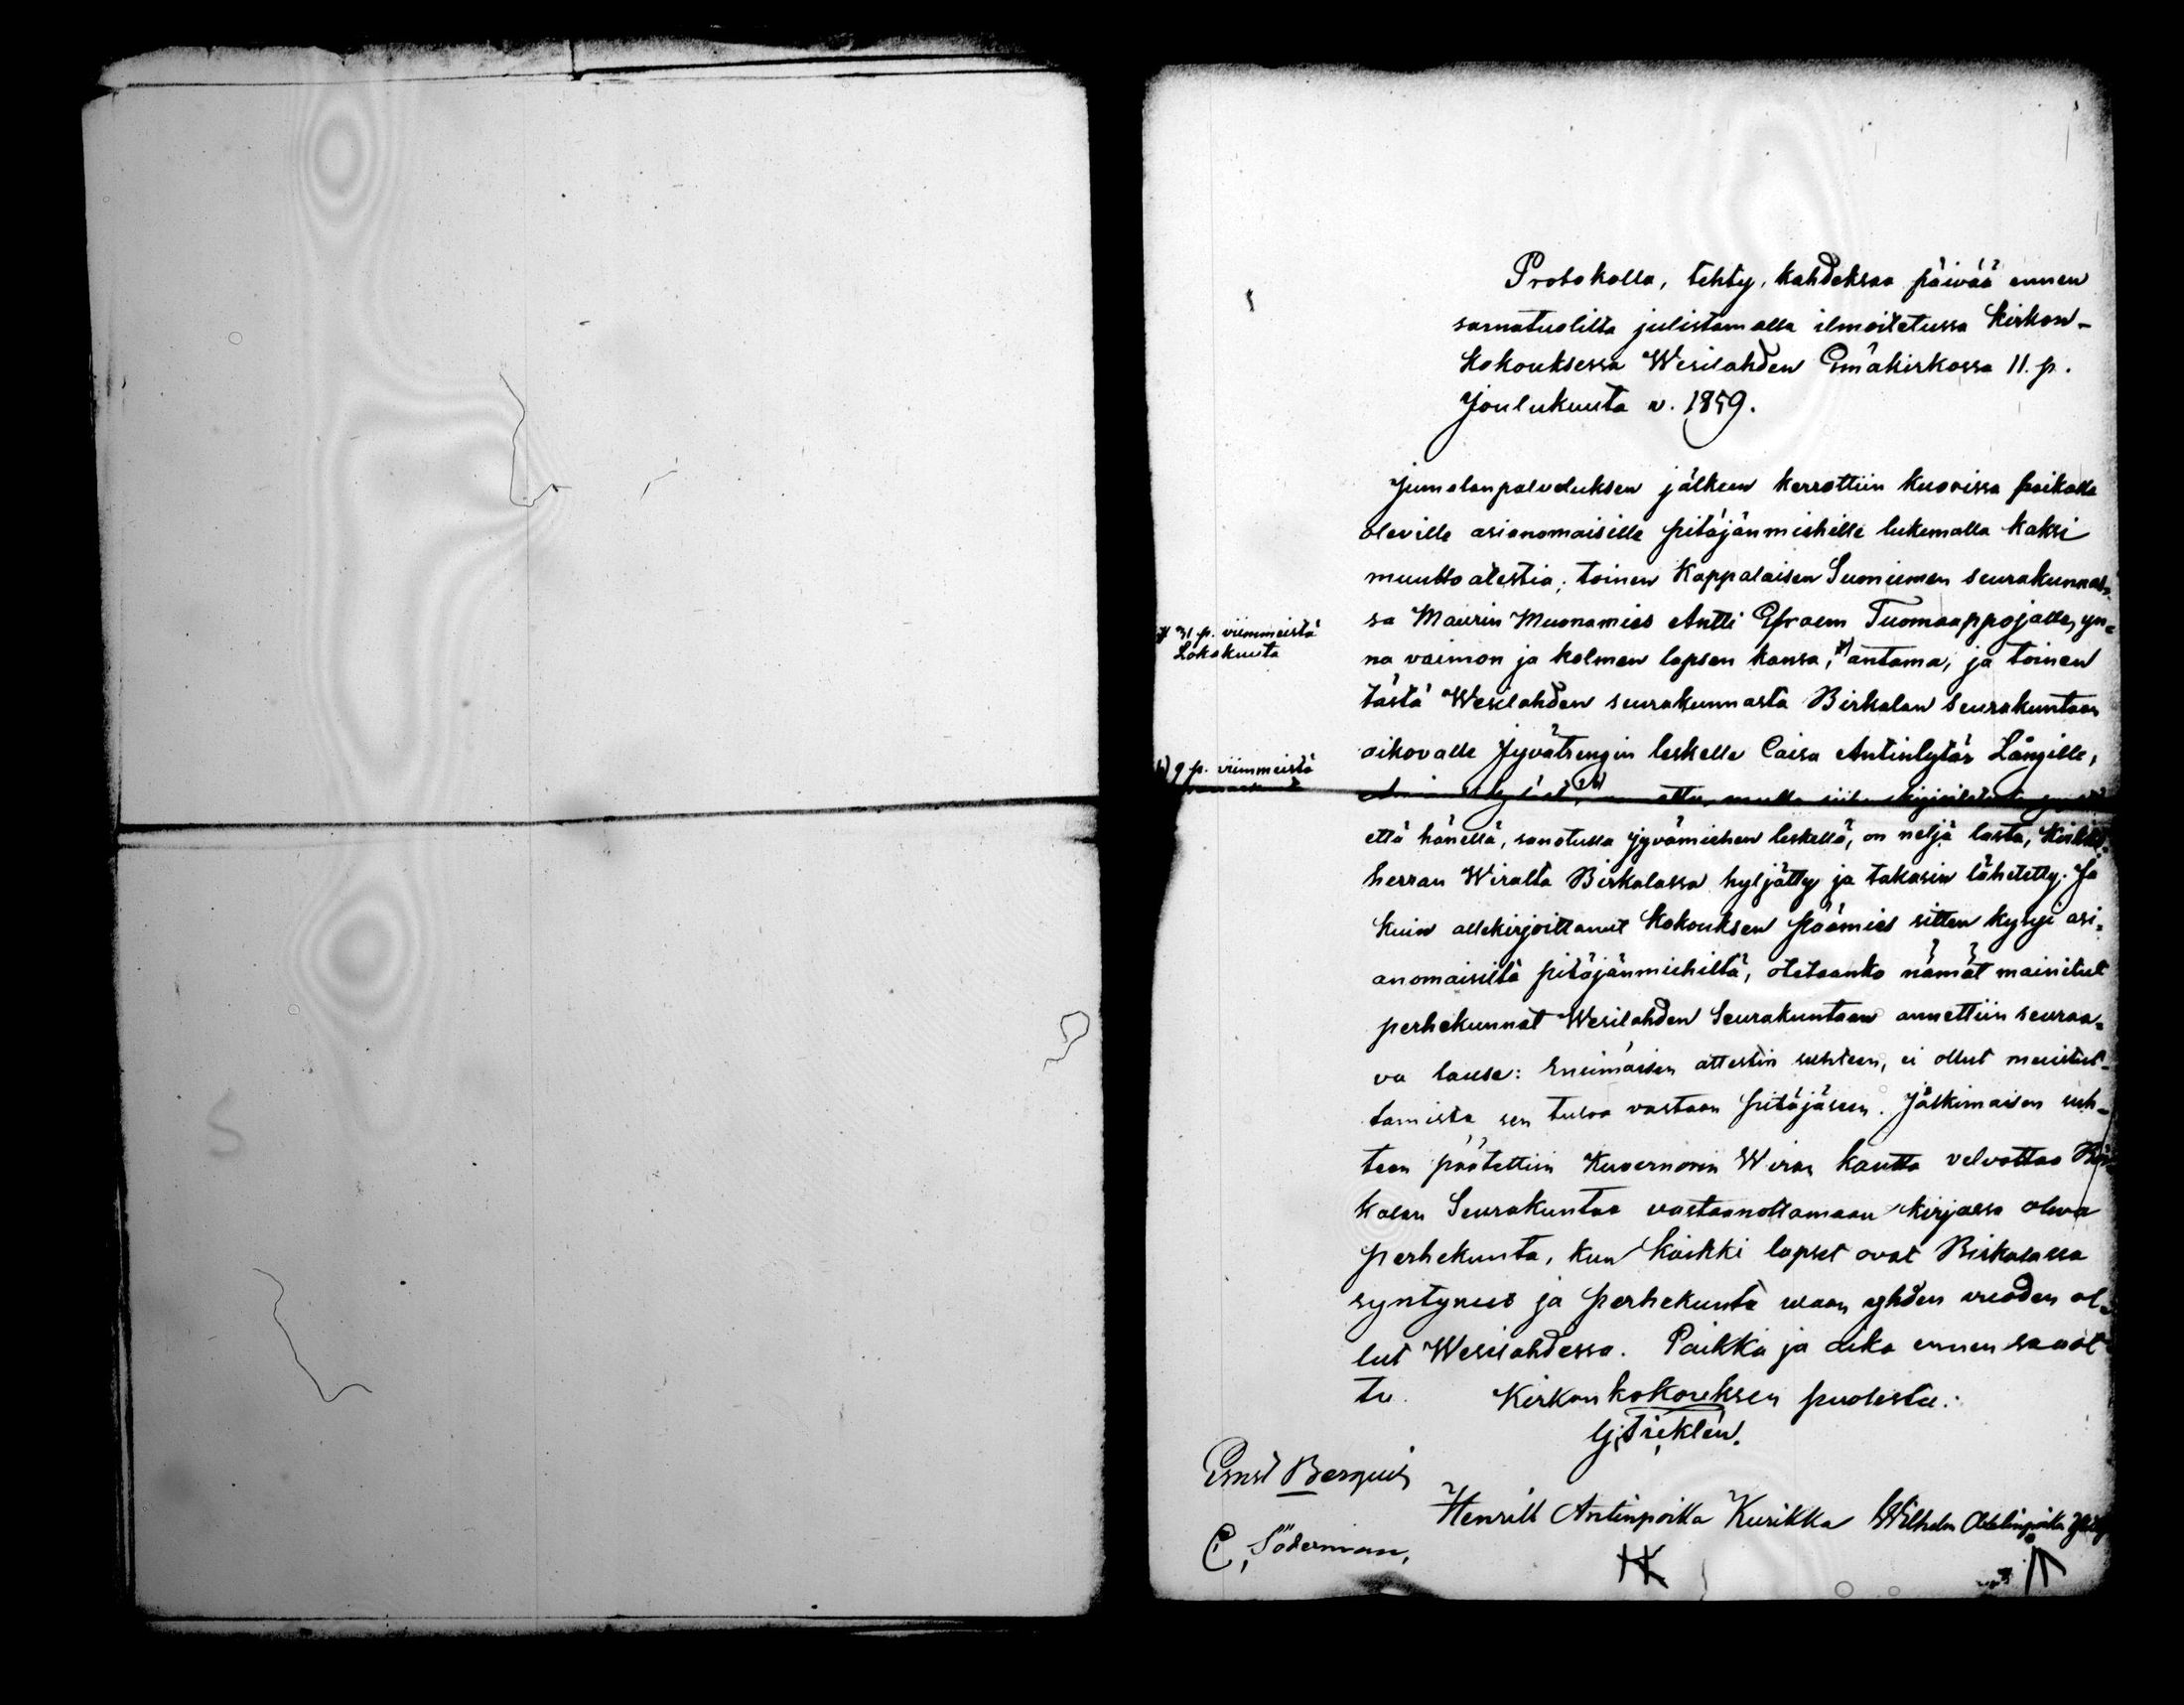 Protokolla, tehty, kahdeksaa päivää ennen
sarnatuolilta julistamalla ilmoitetussa Kirkon-
kokouksessa Wesilahden Emäkirkossa 11. p.
Joulukuuta v. 1859.
Jumalanpalveluksen jälkeen kerrottiin kuorissa paikalla
oleville asianomaisille pitäjänmiehille lukemalla kaksi
muutto atestia; toinen Kappalaisen Suoniemen seurakunnas-
sa Maurin Muonamies Antti Efraem Tuomaappojalle, yn-
na vaimon ja kolmen lapsen kansa, #) antama, ja toinen
# 31 p. viimmeistä
Lokakuuta
tästä Wesilahden seurakunnasta Birkalan Seurakuntaan
aikovalle Jyvätrengin leskelle Caisa Antintytär Långille,
9 p. viimmeistä
että hänellä, sanotulla jyvämiehen leskellä, on neljä lasta, Kirkko-
herran Wiralta Birkalassa hyljätty ja takasin lähetetty. Ja
kuin allekirjoittanut Kokouksen päämies sitten kysyi asi-
anomaisilta pitäjänmiehiltä, otetaanko nämät mainitut
perhekunnat Wesilahden Seurakuntaan annettiin seuraa-
va lause: Ensimäisen attestin suhteen, ei ollut muistut-
tamista sen tuloa vastaan pitäjäseen. Jälkimaisen suh-
teen päätettiin Kuvernörin Wiran kautta velvottaa Bir-
kalan Seurakuntaa vastaanottamaan kirjassa oleva
perhekunta, kun kaikki lapset ovat Birkalassa
syntyneet ja perhekunta waan yhden vuoden ol-
lut Wesilahdessa. Paikka ja aika ennen sanot-
tu. Kirkon kokouksen puolesta:
Gj. Fieklén.
Ernst Berquis
Henrik Antinpoika Kurikka Wilhelm
C. Söderman,
HK